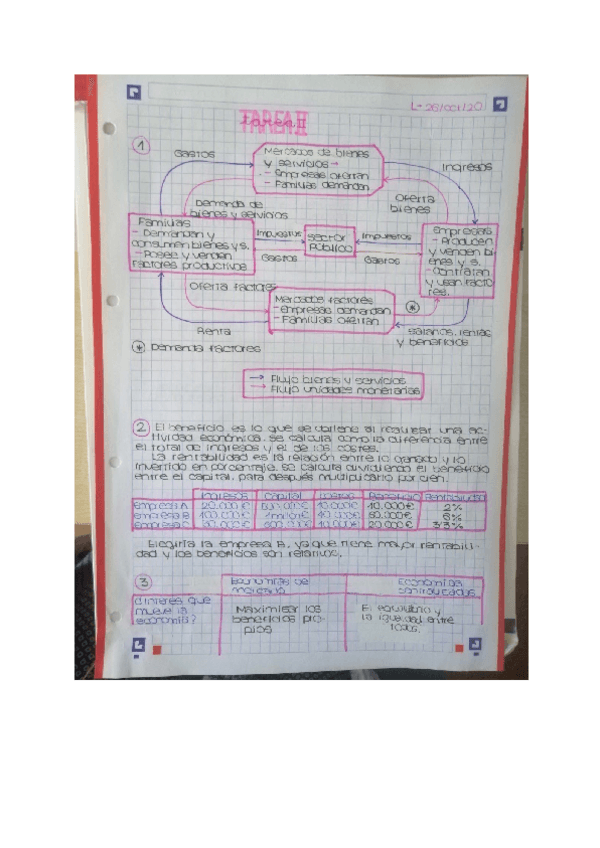 L-26/oct/20
TAREA II
1
Mercados de bienes
y servicios
- Empresas ofertan
- Familias demandan
Gastos
Ingresos
Demanda de
bienes y servicios
Oferta
bienes
Familias
- Demandan y
consumen bienes y s.
- Posee y venden
factores productivos
Impuestos
Sector
Público
Impuestos
Gastos
Gastos
Empresas
- Producen
y venden bi-
enes y s.
- Contratan
y usan facto
res.
Oferta factores
Mercados factores
- Empresas demandan
- Familias ofertan
*
Renta
Salarios, rentas
y beneficios
* Demanda factores
Flujo bienes y servicios
Flujo unidades monetarias
2 El beneficio es lo que se obtiene al realizar una ac-
tividad económica, se calcula como la diferencia entre
el total de ingresos y el de los costes.
La rentabilidad es la relación entre lo ganado y lo
invertido en porcentaje, se calcula dividiendo el beneficio
entre el capital, para después multiplicarlo por cien.
Ingresos Capital Costes Beneficio Rentabilidad
Empresa A 20.000€ 500.000€ 10.000€ 10.000€ 2%
Empresa B 100.000€ 1 millón € 40.000€ 60.000€ 6%
Empresa C 30.000€ 600.000€ 10.000€ 20.000€ 3'3%
Elegiría la empresa B, ya que tiene mayor rentabili-
dad y los beneficios son relativos.
3
Economías de
mercado
Economías
centralizadas
¿Interés que
mueve la
economía?
Maximizar los
beneficios pro-
pios
El equilibrio y
la igualdad entre
todos.